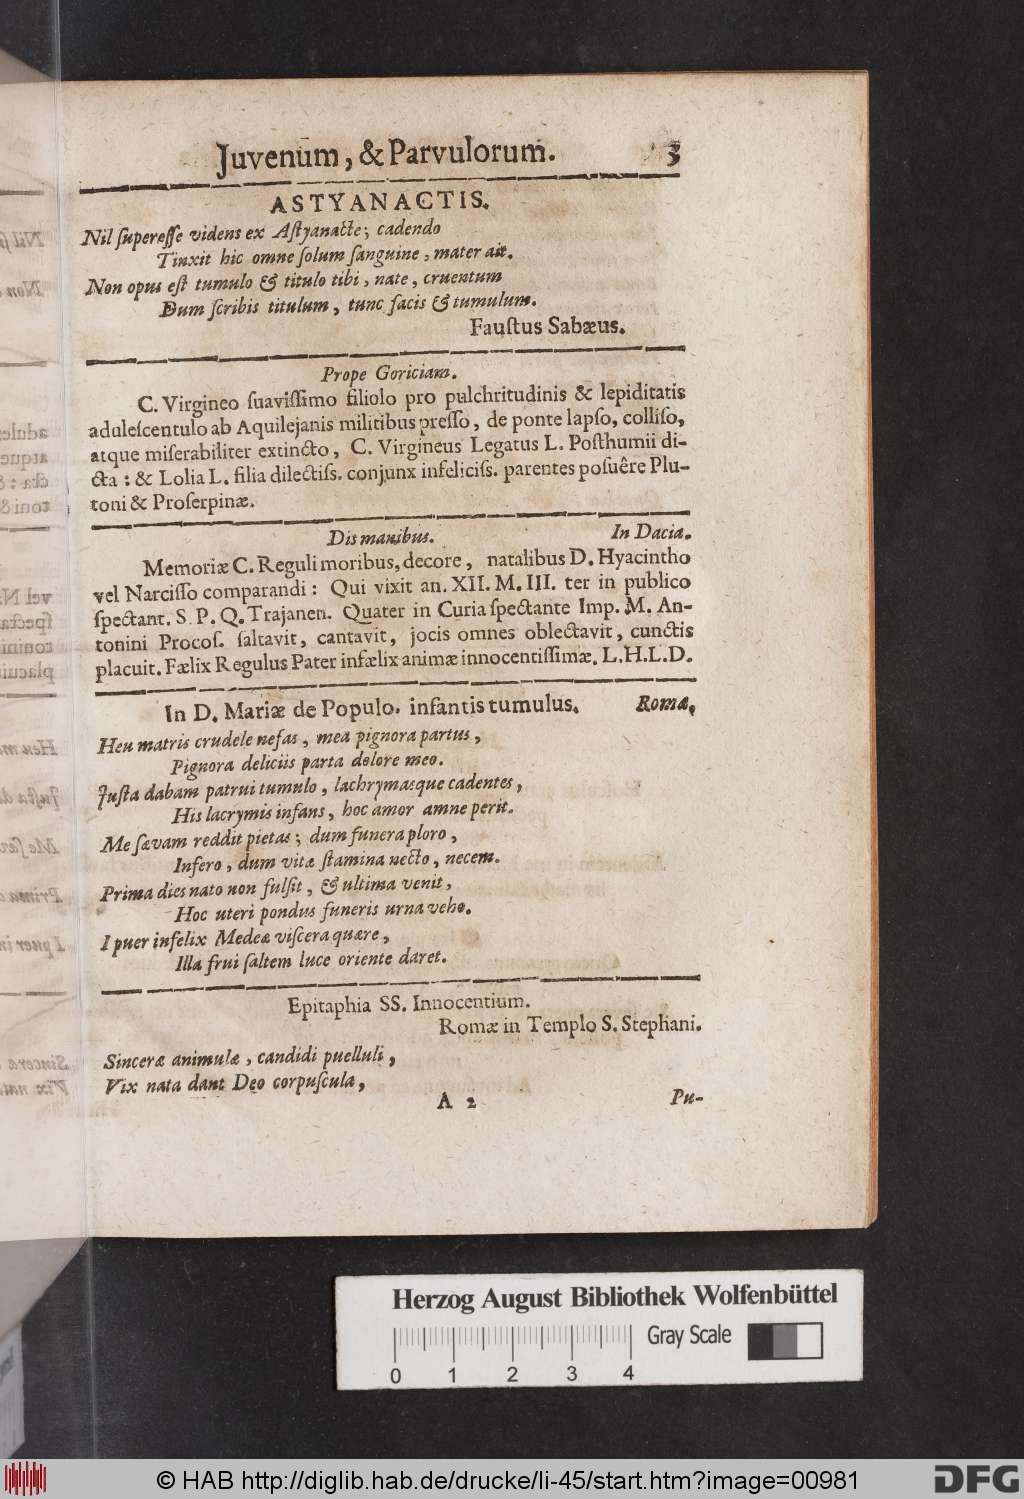 Juvenum, & Parvulorum. 3
ASTYANACTIS.
Nil ſupereſſe videns ex Aſtyanacte; cadendo
Tinxit hic omne ſolum ſanguine, mater ait.
Non opus eſt tumulo & titulo tibi, nate, cruentum
Dum ſcribis titulum, tunc facis & tumulum.
Fauſtus Sabæus.
Prope Goriciam.
C. Virgineo ſuaviſſimo filiolo pro pulchritudinis & lepiditatis
aduleſcentulo ab Aquilejanis militibus preſſo, de ponte lapſo, colliſo,
atque miſerabiliter extincto, C. Virgineus Legatus L. Poſthumii di-
cta : & Lolia L. filia dilectiſs. conjunx infeliciſs. parentes poſuêre Plu-
toni & Proſerpinæ.
Dis manibus. In Dacia.
Memoriæ C. Reguli moribus, decore, natalibus D. Hyacintho
vel Narciſſo comparandi : Qui vixit an. XII. M. III. ter in publico
ſpectant. S. P. Q. Trajanen. Quater in Curia ſpectante Imp. M. An-
tonini Procoſ. ſaltavit, cantavit, jocis omnes oblectavit, cunctis
placuit. Fælix Regulus Pater infælix animæ innocentiſſimæ. L. H. L. D.
In D. Mariæ de Populo. infantis tumulus. Romæ.
Heu matris crudele nefas, mea pignora partus,
Pignora deliciis parta dolore meo.
Juſta dabam patrui tumulo, lachrymasque cadentes,
His lacrymis infans, hoc amor amne perit.
Me ſævam reddit pietas; dum funera ploro,
Infero, dum vitæ ſtamina necto, necem.
Prima dies nato non fulſit, & ultima venit,
Hoc uteri pondus funeris urna veho.
I puer infelix Medeæ viſcera quære,
Illa frui ſaltem luce oriente daret.
Epitaphia SS. Innocentium.
Romæ in Templo S. Stephani.
Sinceræ animulæ, candidi puelluli,
Vix nata dant Deo corpuſcula,
A 2 Pu-
Herzog August Bibliothek Wolfenbüttel
Gray Scale
0 1 2 3 4
© HAB http://diglib.hab.de/drucke/li-45/start.htm?image=00981
DFG